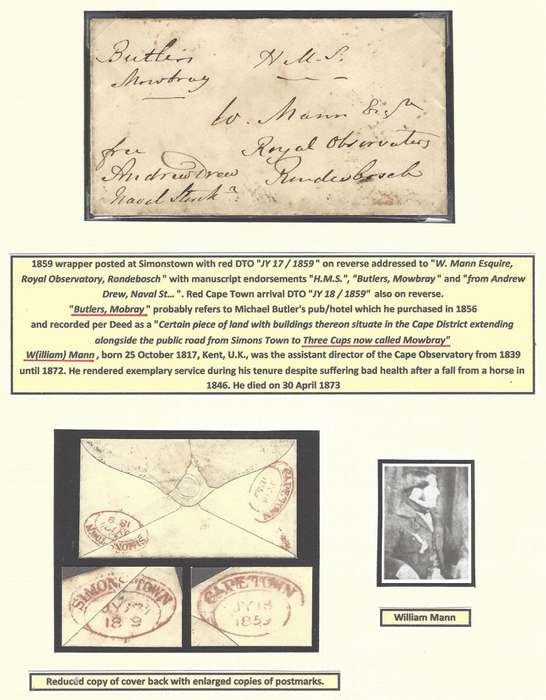 Butlers
Mowbray
H.M.S.
W. Mann Esqre
Royal Observatory
Rondebosch
free
Andrew Drew
Naval Storkr
1859 wrapper posted at Simonstown with red DTO "JY 17 / 1859" on reverse addressed to "W. Mann Esquire,
Royal Observatory, Rondebosch" with manuscript endorsements "H.M.S.", "Butlers, Mowbray" and "from Andrew
Drew, Naval St...". Red Cape Town arrival DTO "JY 18 / 1859" also on reverse.
"Butlers, Mobray" probably refers to Michael Butler's pub/hotel which he purchased in 1856
and recorded per Deed as a "Certain piece of land with buildings thereon situate in the Cape District extending
alongside the public road from Simons Town to Three Cups now called Mowbray"
W(illiam) Mann , born 25 October 1817, Kent, U.K., was the assistant director of the Cape Observatory from 1839
until 1872. He rendered exemplary service during his tenure despite suffering bad health after a fall from a horse in
1846. He died on 30 April 1873
SIMONS TOWN
CAPE TOWN
SIMONS TOWN
JY
18 9
CAPE TOWN
JY 18
1859
William Mann
Reduced copy of cover back with enlarged copies of postmarks.